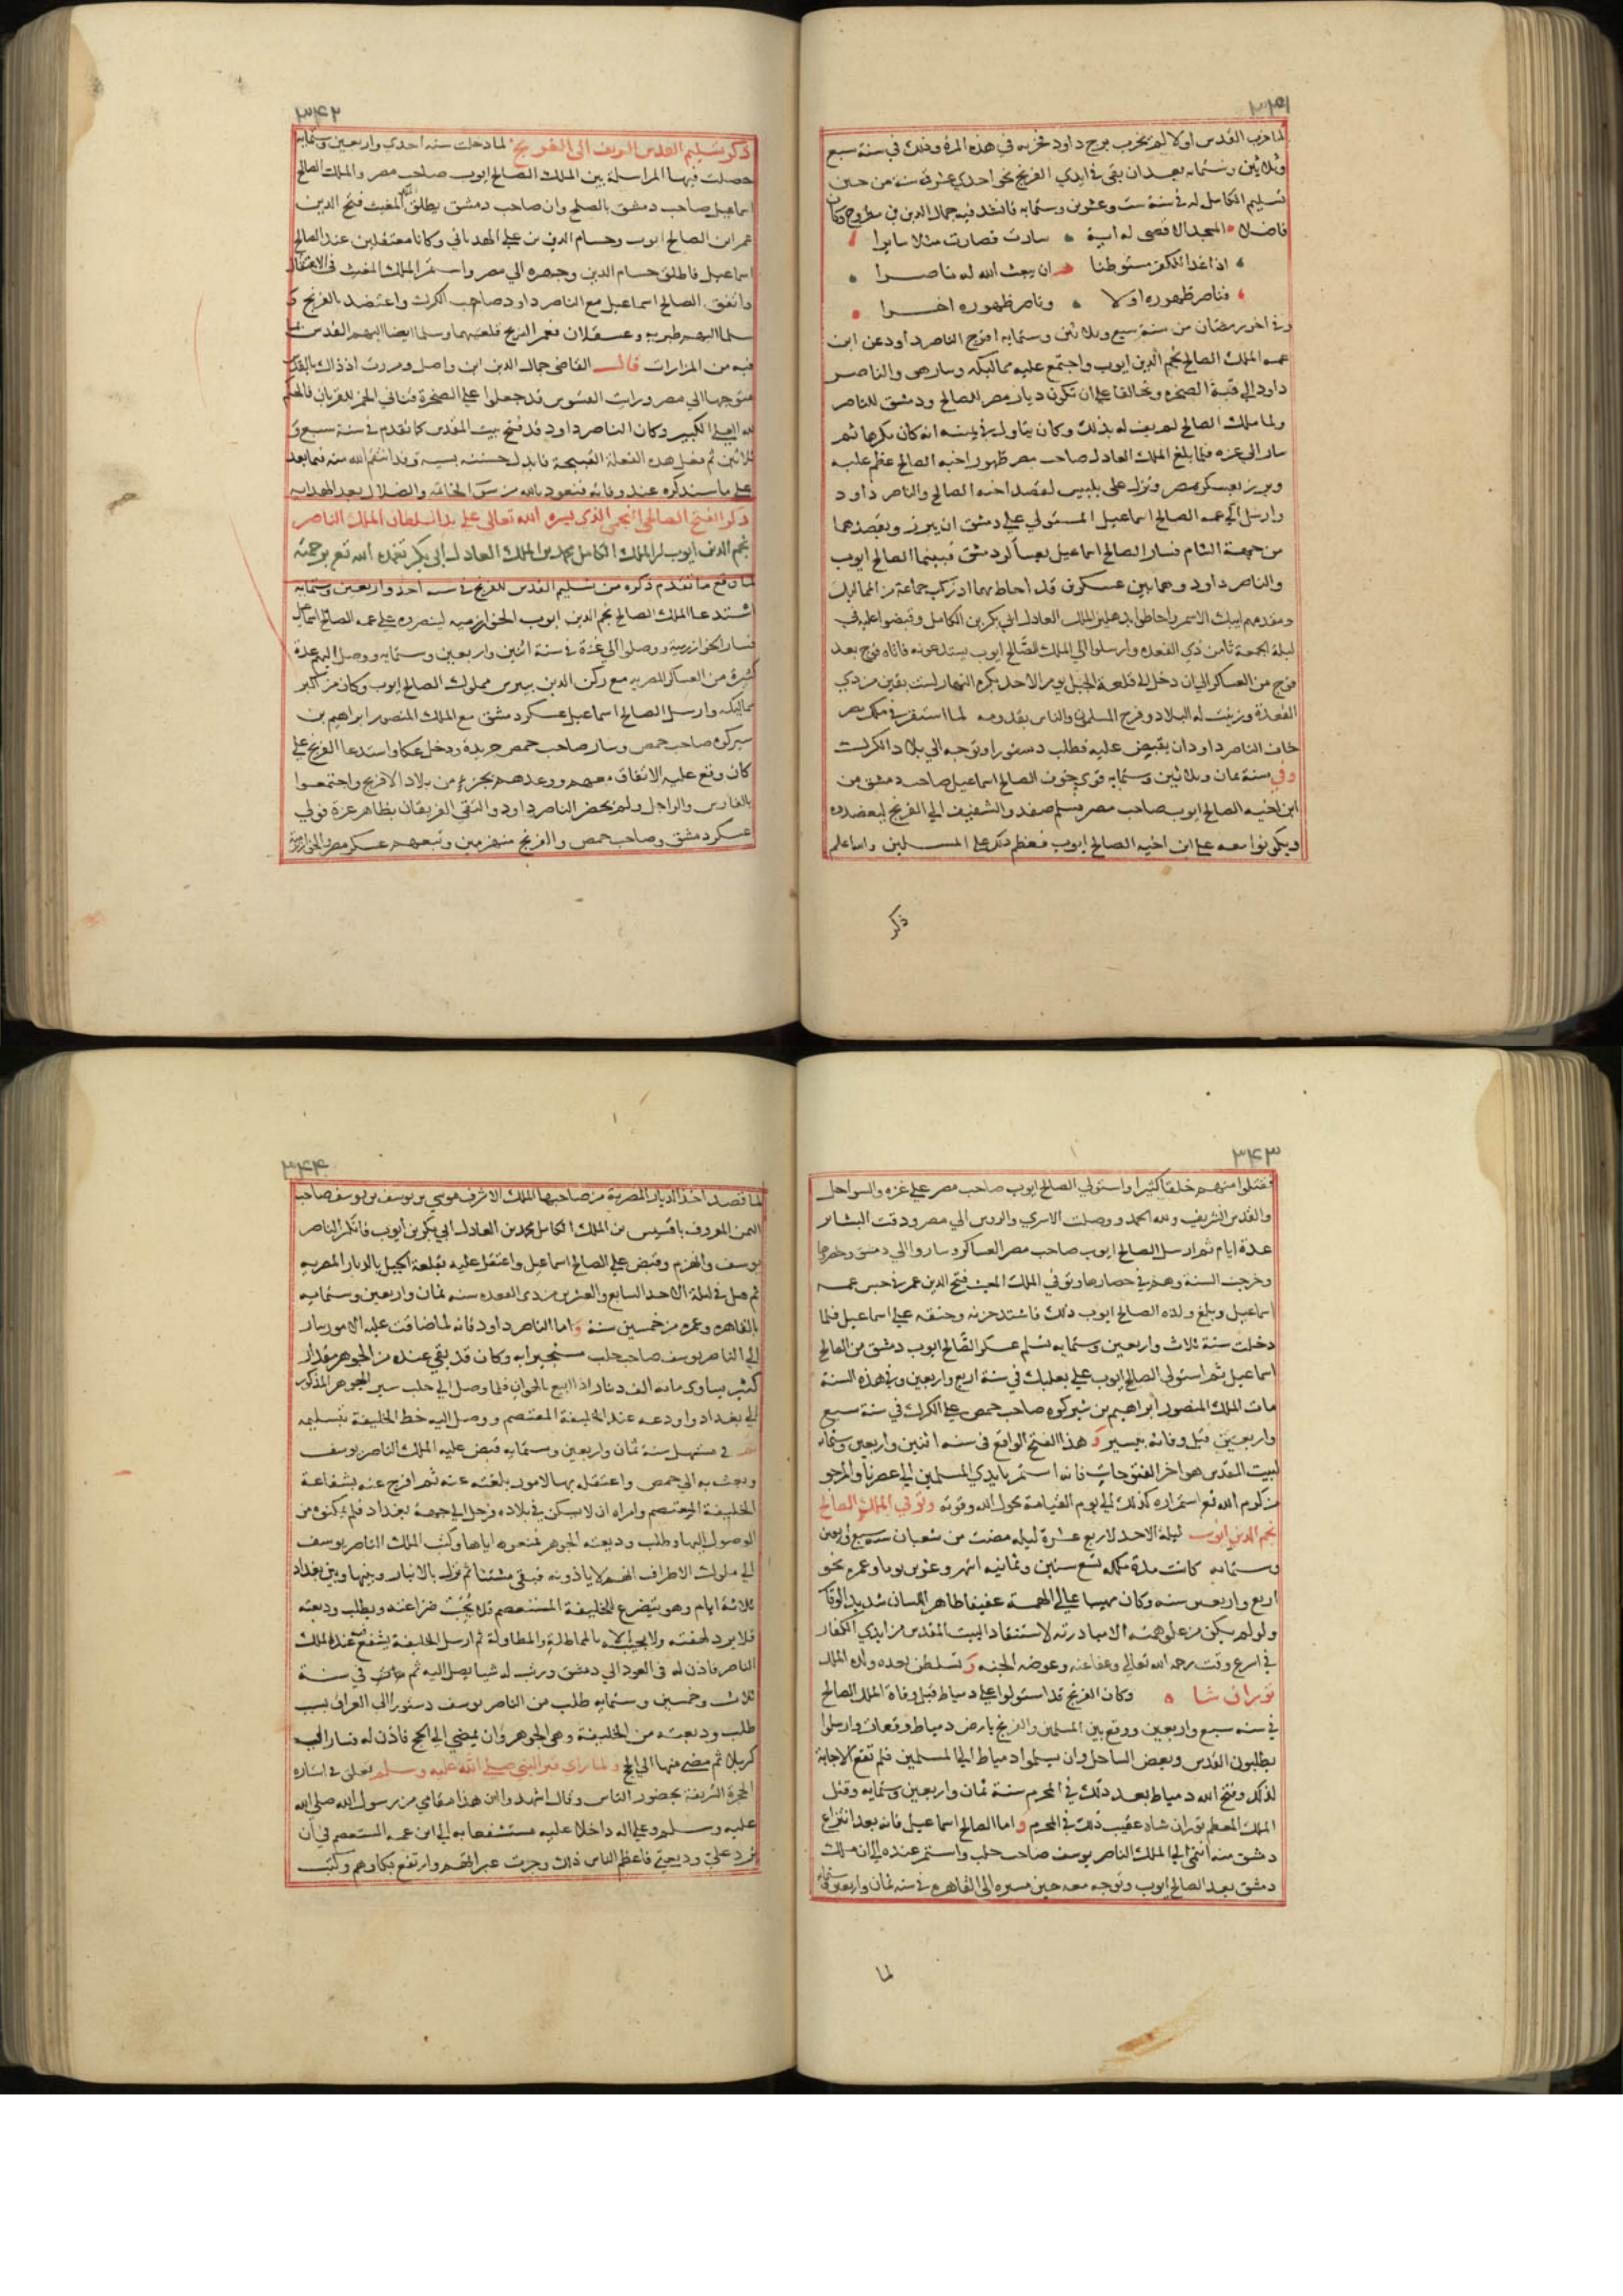 ٣٤١
لما خرب القدس اولا لم يخرب برج داود فخربه في هذه المرة وذلك في سنة سبع
وثلاثين وستمايه بعد ان بقي في ايدي الفرنج نحو احدي عشرة سنة من حين
تسليم الكامل له في سنة ست وعشرين وستمايه فانشد فيه جمال الدين بن مطروح وكان
فاضلا المسجد الاقصى له اية سارت فصارت مثلا سايرا
اذا غدا للكفر مستوطنا ان يبعث الله له ناصرا
فناصر طهره اولا وناصر طهره اخرا
وفي اخر رمضان من سنة سبع وثلاثين وستمايه افرج الناصر داود عن ابن
عمه الملك الصالح نجم الدين ايوب واجتمع عليه مماليكه وسار هو والناصر
داود الي قبة الصخره وتحالفا علي ان تكون ديار مصر للصالح ودمشق للناصر
ولما ملك الصالح لم يف له بذلك وكان يتاول في يمينه انه كان مكرها ثم
سار الي غزه فلما بلغ الملك العادل صاحب مصر ظهور اخيه الصالح عظم عليه
وبرز بعسكر مصر ونزل على بلبيس لقصد اخيه الصالح والناصر داود
وارسل الي عمه الصالح اسماعيل المستولي علي دمشق ان يبرز ويقصدهما
من جهة الشام فسار الصالح اسماعيل بعساكر دمشق فبينما الصالح ايوب
والناصر داود وهما بين عسكرين قد احاطا بهما اذ ركب جماعة من المماليك
ومقدمهم ايبك الاسمر واحاطوا بدهليز الملك العادل ابي بكر بن الكامل وقبضوا عليه في
ليلة الجمعة ثامن ذي القعده وارسلوا الي الملك الصالح ايوب يستدعونه فاتاه فوج بعد
فوج من العساكر الي ان دخل الي قلعة الجبل يوم الاحد بكرة النهار لست بقين من ذي
القعدة وزينت له البلاد وفرح المسلمون والناس بقدومه لما استقر في ملك مصر
خاف الناصر داود ان يقبض عليه فطلب دستورا وتوجه الي بلاد الكرك
وفي سنة ثمان وثلاثين وستمايه قوي خوف الصالح اسماعيل صاحب دمشق من
ابن اخيه الصالح ايوب صاحب مصر فسلم صفد والشقيف الي الفرنج ليعضدوه
ويكونوا معه علي ابن اخيه الصالح ايوب فعظم ذلك علي المسلمين والله اعلم
ذكر
٣٤٢
ذكر تسليم القدس الشريف الى الفرنج لما دخلت سنه احدي واربعين وستمايه
حصلت فيها المراسلة بين الملك الصالح ايوب صاحب مصر والملك الصالح
اسماعيل صاحب دمشق بالصلح وان صاحب دمشق يطلق المغيث فتح الدين
عمر ابن الصالح ايوب وحسام الدين بن علي الهدباني وكانا معتقلين عند الصالح
اسماعيل فاطلق حسام الدين وجهزه الي مصر واستمر الملك المغيث في الاعتقال
واتفق الصالح اسماعيل مع الناصر داود صاحب الكرك واعتضد بالفرنج و
سلما اليهم طبريه وعسقلان فعمر الفرنج قلعتيهما وسلما ايضا اليهم القدس بما
فيه من المزارات قال القاضي جمال الدين ابن واصل ومررت اذ ذاك بالقدس
متوجها الي مصر ورايت القسوس قد جعلوا علي الصخرة قناني الخمر للقربان فالحكم
لله العلي الكبير وكان الناصر داود قد فتح بيت المقدس كما تقدم في سنة سبع و
ثلاثين ثم فعل هذه الفعلة القبيحة فابدل حسنته بسيه وقد انتقم الله منه فيما بعد
علي ما سنذكره عند وفاته فنعوذ بالله من سوء الخاتمه والضلال بعد الهدايه
ذكر الفتح الصالحي النجمي الذي يسره الله تعالى علي يد السلطان الملك الناصر
نجم الدين ايوب بن الملك الكامل محمد بن الملك العادل ابي بكر تغمده الله تع برحمته
لما وقع ما تقدم ذكره من تسليم القدس للفرنج في سنه احد واربعين وستمايه
اشتدعا الملك الصالح نجم الدين ايوب الخوارزميه لينصروه علي عمه الصالح اسماعيل
فسار الخوارزميه ووصلوا الي غزة في سنة اثنين واربعين وستمايه ووصل اليهم عدة
كثيرة من العساكر المصريه مع ركن الدين بيبرس مملوك الصالح ايوب وكان من اكبر
مماليكه وارسل الصالح اسماعيل عسكر دمشق مع الملك المنصور ابراهيم بن
شيركوه صاحب حمص وسار صاحب حمص جريدة ودخل عكا واستدعا الفرنج علي
كان وقع عليه الاتفاق معهم ووعدهم بجزء من بلاد الافرنج واجتمعوا
بالفارس والراجل ولم يحضر الناصر داود والتقي الفريقان بظاهر غزة فولي
عسكر دمشق وصاحب حمص والفرنج منهزمين وتبعهم عسكر مصر والخوارزمية
٣٤٣
فقتلوا منهم خلقا كثيرا واستولي الصالح ايوب صاحب مصر علي غزه والسواحل
والقدس الشريف ولله الحمد ووصلت الاسري والروس الي مصر ودقت البشاير
عدة ايام ثم ارسل الصالح ايوب صاحب مصر العساكر وساروا الي دمشق وحصروها
وخرجت السنة وهم في حصارها وتوفي الملك المغيث فتح الدين عمر في حبس عمه
اسماعيل وبلغ والده الصالح ايوب ذلك فاشتد حزنه وحنقه علي اسماعيل فلما
دخلت سنة ثلاث واربعين وستمايه تسلم عسكر الصالح ايوب دمشق من الصالح
اسماعيل ثم استولي الصالح ايوب علي بعلبك في سنة اربع واربعين وفي هذه السنة
مات الملك المنصور ابراهيم بن شيركوه صاحب حمص علي الكرك في سنة سبع
واربعين قبل وفاته بيسير و هذا الفتح الواقع في سنه اثنين واربعين وستمايه
لبيت المقدس هو اخر الفتوحات فانه استمر بايدي المسلمين الي عصرنا والمرجو
من كرم الله تع استمراره كذلك الي يوم القيامة بحول الله وقوته وتوفي الملك الصالح
نجم الدين ايوب ليلة الاحد لاربع عشرة ليله مضت من شعبان سنه سبع واربعين
وستمايه كانت مدة ملكه تسع سنين وثمانيه اشهر وعشرين يوما وعمره نحو
اربع واربعين سنه وكان مهيبا عالي الهمة عفيفا طاهر اللسان شديد الوقار
ولو لم يكن من علو همته الا مبادرته لاستنقاد البيت المقدس من ايدي الكفار
في اسرع وقت رحمه الله تعالي وعفا عنه وعوضه الجنه و تسلطن بعده ولده الملك
توران شاه وكان الفرنج قد استولوا علي دمياط قبل وفاة الملك الصالح
في سنه سبع واربعين ووقع بين المسلمين والفرنج بارض دمياط وقعات وارسلوا
يطلبون القدس وبعض الساحل وان يسلموا دمياط الي المسلمين فلم تقع الاجابة
لذلك وفتح الله دمياط بعد ذلك في المحرم سنة ثمان واربعين وستمايه وقتل
الملك المعظم توران شاه عقيب ذلك في المحرم واما الصالح اسماعيل فانه بعد انتزاع
دمشق منه التجي الي الملك الناصر يوسف صاحب حلب واستمر عنده الي ان ملك
دمشق بعد الصالح ايوب وتوجه معه حين مسيره الي القاهره في سنه ثمان واربعين وستمايه
لما
٣٤٤
لما قصد اخذ الديار المصرية من صاحبها الملك الاشرف موسي بن يوسف بن يوسف صاحب
اليمن المعروف باقسيس بن الملك الكامل محمد بن العادل ابي بكر بن ايوب فانكسر الناصر
يوسف وانهزم وقبض علي الصالح اسماعيل واعتقل عليه بقلعة الجبل بالديار المصريه
ثم قتل في ليلة الاحد السابع والعشرين من ذي القعده سنه ثمان واربعين وستمايه
بالقاهره وعمره من خمسين سنة واما الناصر داود فانه لما ضاقت عليه الامور سار
الي الناصر يوسف صاحب حلب مستجيرا به وكان قد بقي عنده من الجوهر مقدار
كثير يساوي مائة الف دينار اذا ابيع بالهوان فلما وصل الي حلب سير الجوهر المذكور
الي بغداد واودعه عند الخليفة المعتصم ووصل اليه خط الخليفة بتسليمه
في مستهل سنة ثمان واربعين وستمايه قبض عليه الملك الناصر يوسف
وبعث به الي حمص واعتقله بها لامور بلغته عنه ثم افرج عنه بشفاعة
الخليفة المعتصم وامراه ان لا يسكن في بلاده فرحل الي جهة بغداد فلم يمكنوه من
الوصول اليها وطلب وديعته الجوهر فمنعوه اياها وكتب الملك الناصر يوسف
الي ملوك الاطراف انهم لا ياذونه فبقي مشتتا ثم نزل بالانبار وبينها وبين بغداد
ثلاثة ايام وهو يتضرع للخليفة المستعصم فلا يجيب ضراعته ويطلب وديعته
فلا يرد لهفته ولا يجيبه الا بالمماطلة والمطاولة ثم ارسل الخليفة يشفع عند الملك
الناصر فاذن له في العود الي دمشق ورتب له شيا يصل اليه ثم في سنة
ثلاث وخمسين وستمايه طلب من الناصر يوسف دستورا الي العراق بسبب
طلب وديعته من الخليفة وهي الجوهر وان يمضي الي الحج فاذن له فسار الي
كربلا ثم مضي منها الي الحج ولما راي قبر النبي صلي الله عليه وسلم تعلق في استاره
الحجرة الشريفة بحضور الناس وقال اشهدوا ان هذا مقامي من رسول الله صلى الله
عليه وسلم وعلي اله داخلا عليه مستشفعا به الي ابن عمه المستعصم في ان
يرد علي وديعتي فاعظم الناس ذلك وجرت عبراتهم وارتفع بكاوهم وكتب